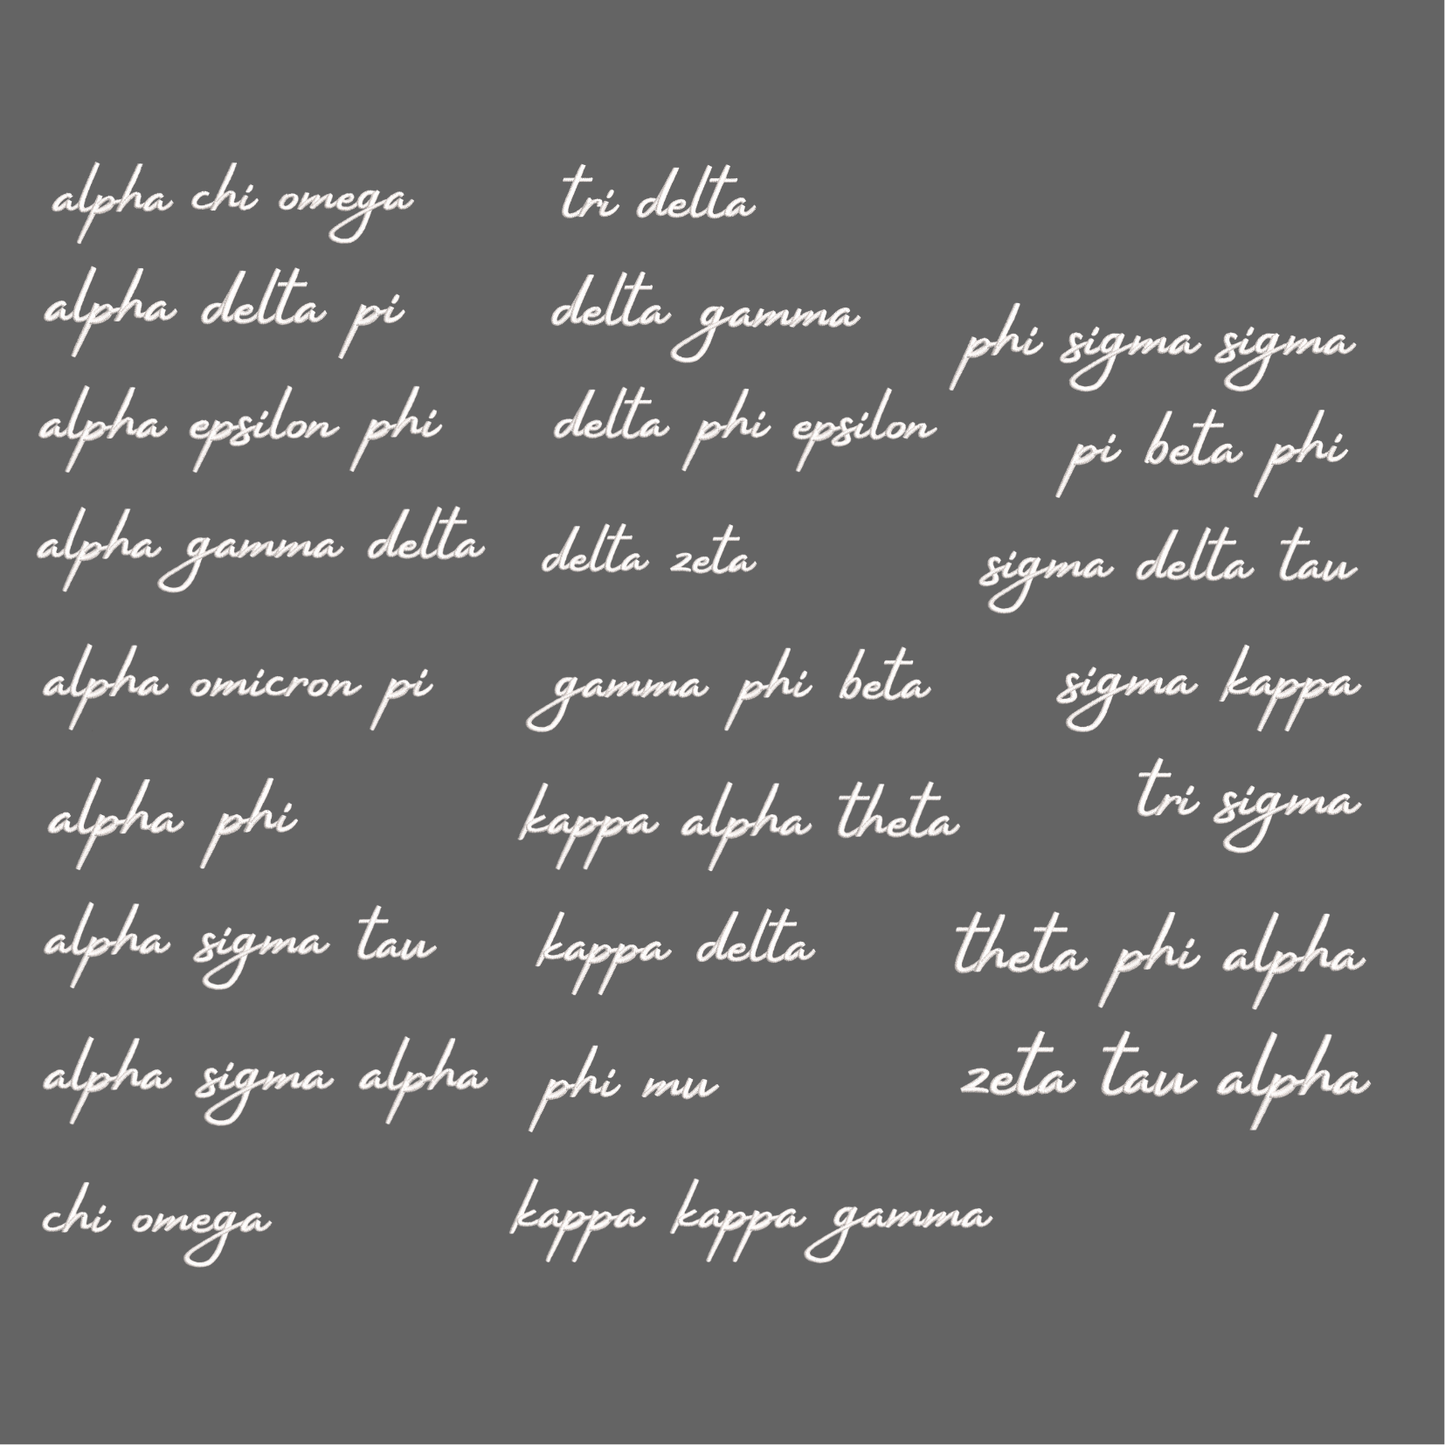 alpha chi omega
alpha delta pi
alpha epsilon phi
alpha gamma delta
alpha omicron pi
alpha phi
alpha sigma tau
alpha sigma alpha
chi omega
tri delta
delta gamma
delta phi epsilon
delta zeta
gamma phi beta
kappa alpha theta
kappa delta
phi mu
kappa kappa gamma
phi sigma sigma
pi beta phi
sigma delta tau
sigma kappa
tri sigma
theta phi alpha
zeta tau alpha